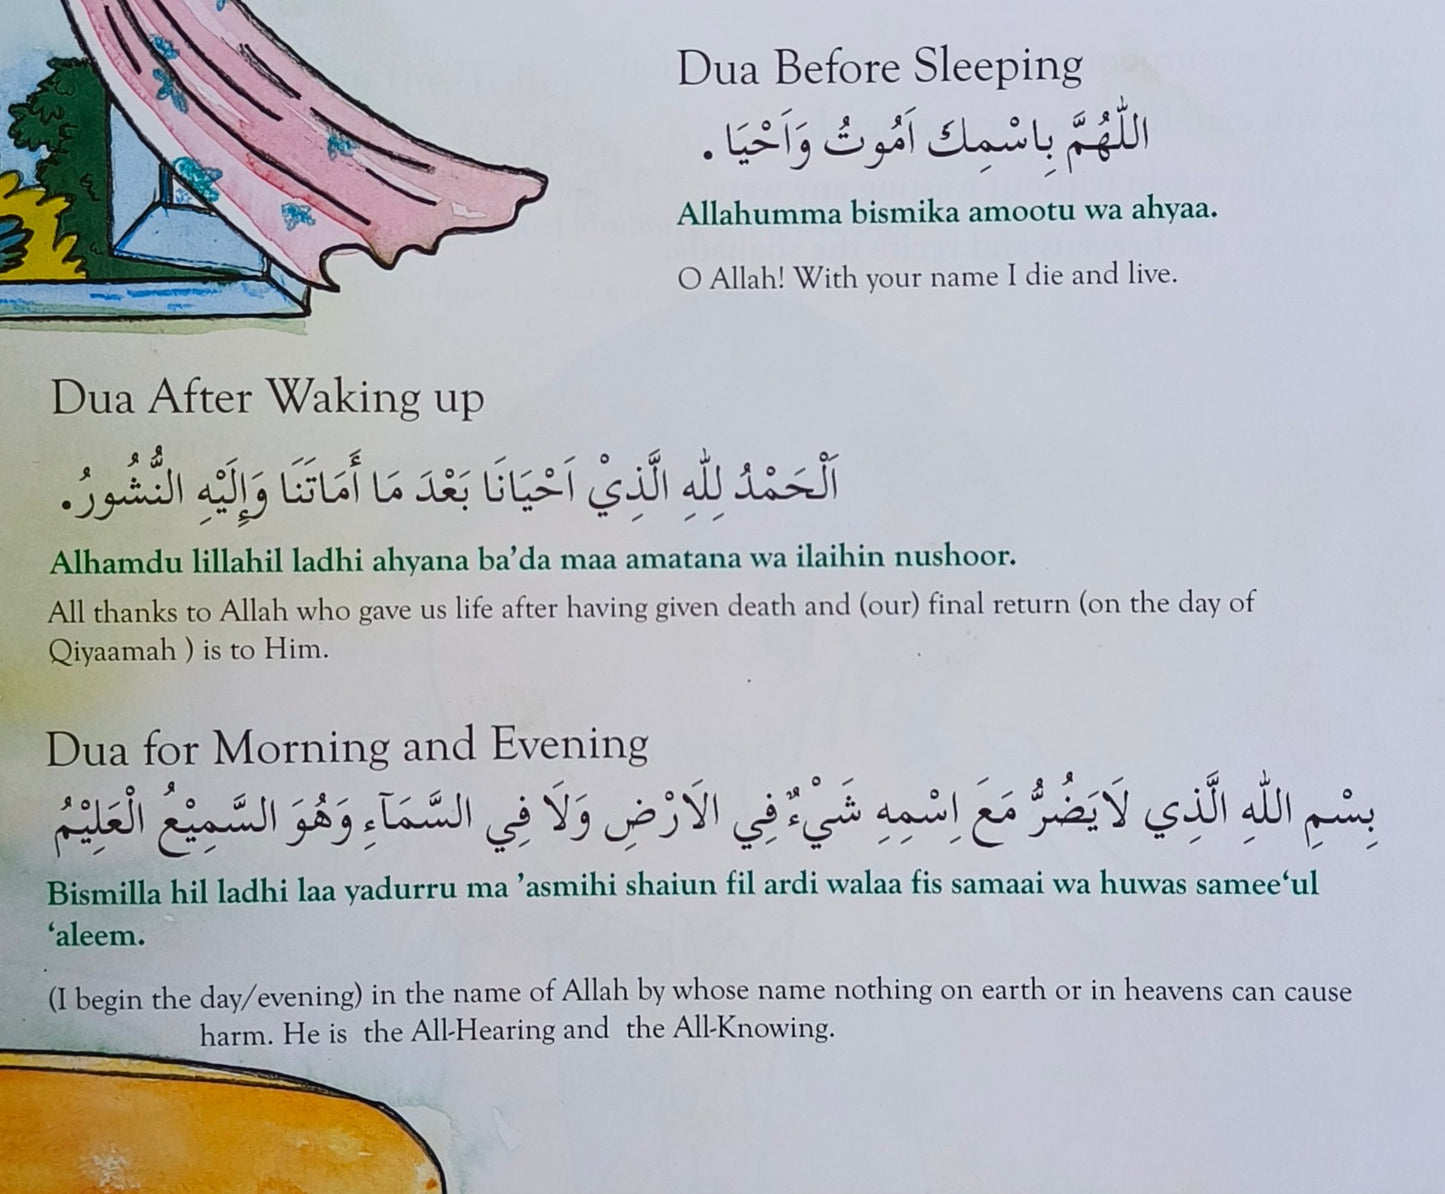 Dua Before Sleeping
اللّٰهُمَّ بِاسْمِكَ اَمُوتُ وَاَحْيَا .
Allahumma bismika amootu wa ahyaa.
O Allah! With your name I die and live.
Dua After Waking up
اَلْحَمْدُ لِلّٰهِ الَّذِيْ اَحْيَانَا بَعْدَ مَا أَمَاتَنَا وَإِلَيْهِ النُّشُورُ.
Alhamdu lillahil ladhi ahyana ba’da maa amatana wa ilaihin nushoor.
All thanks to Allah who gave us life after having given death and (our) final return (on the day of
Qiyaamah ) is to Him.
Dua for Morning and Evening
بِسْمِ اللّٰهِ الَّذِي لَايَضُرُّ مَعَ اِسْمِهِ شَيْءٌ فِي الَارْضِ وَلَا فِي السَّمَآءِ وَهُوَ السَّمِيْعُ الْعَلِيْمُ
Bismilla hil ladhi laa yadurru ma ’asmihi shaiun fil ardi walaa fis samaai wa huwas samee‘ul
‘aleem.
(I begin the day/evening) in the name of Allah by whose name nothing on earth or in heavens can cause
harm. He is the All-Hearing and the All-Knowing.